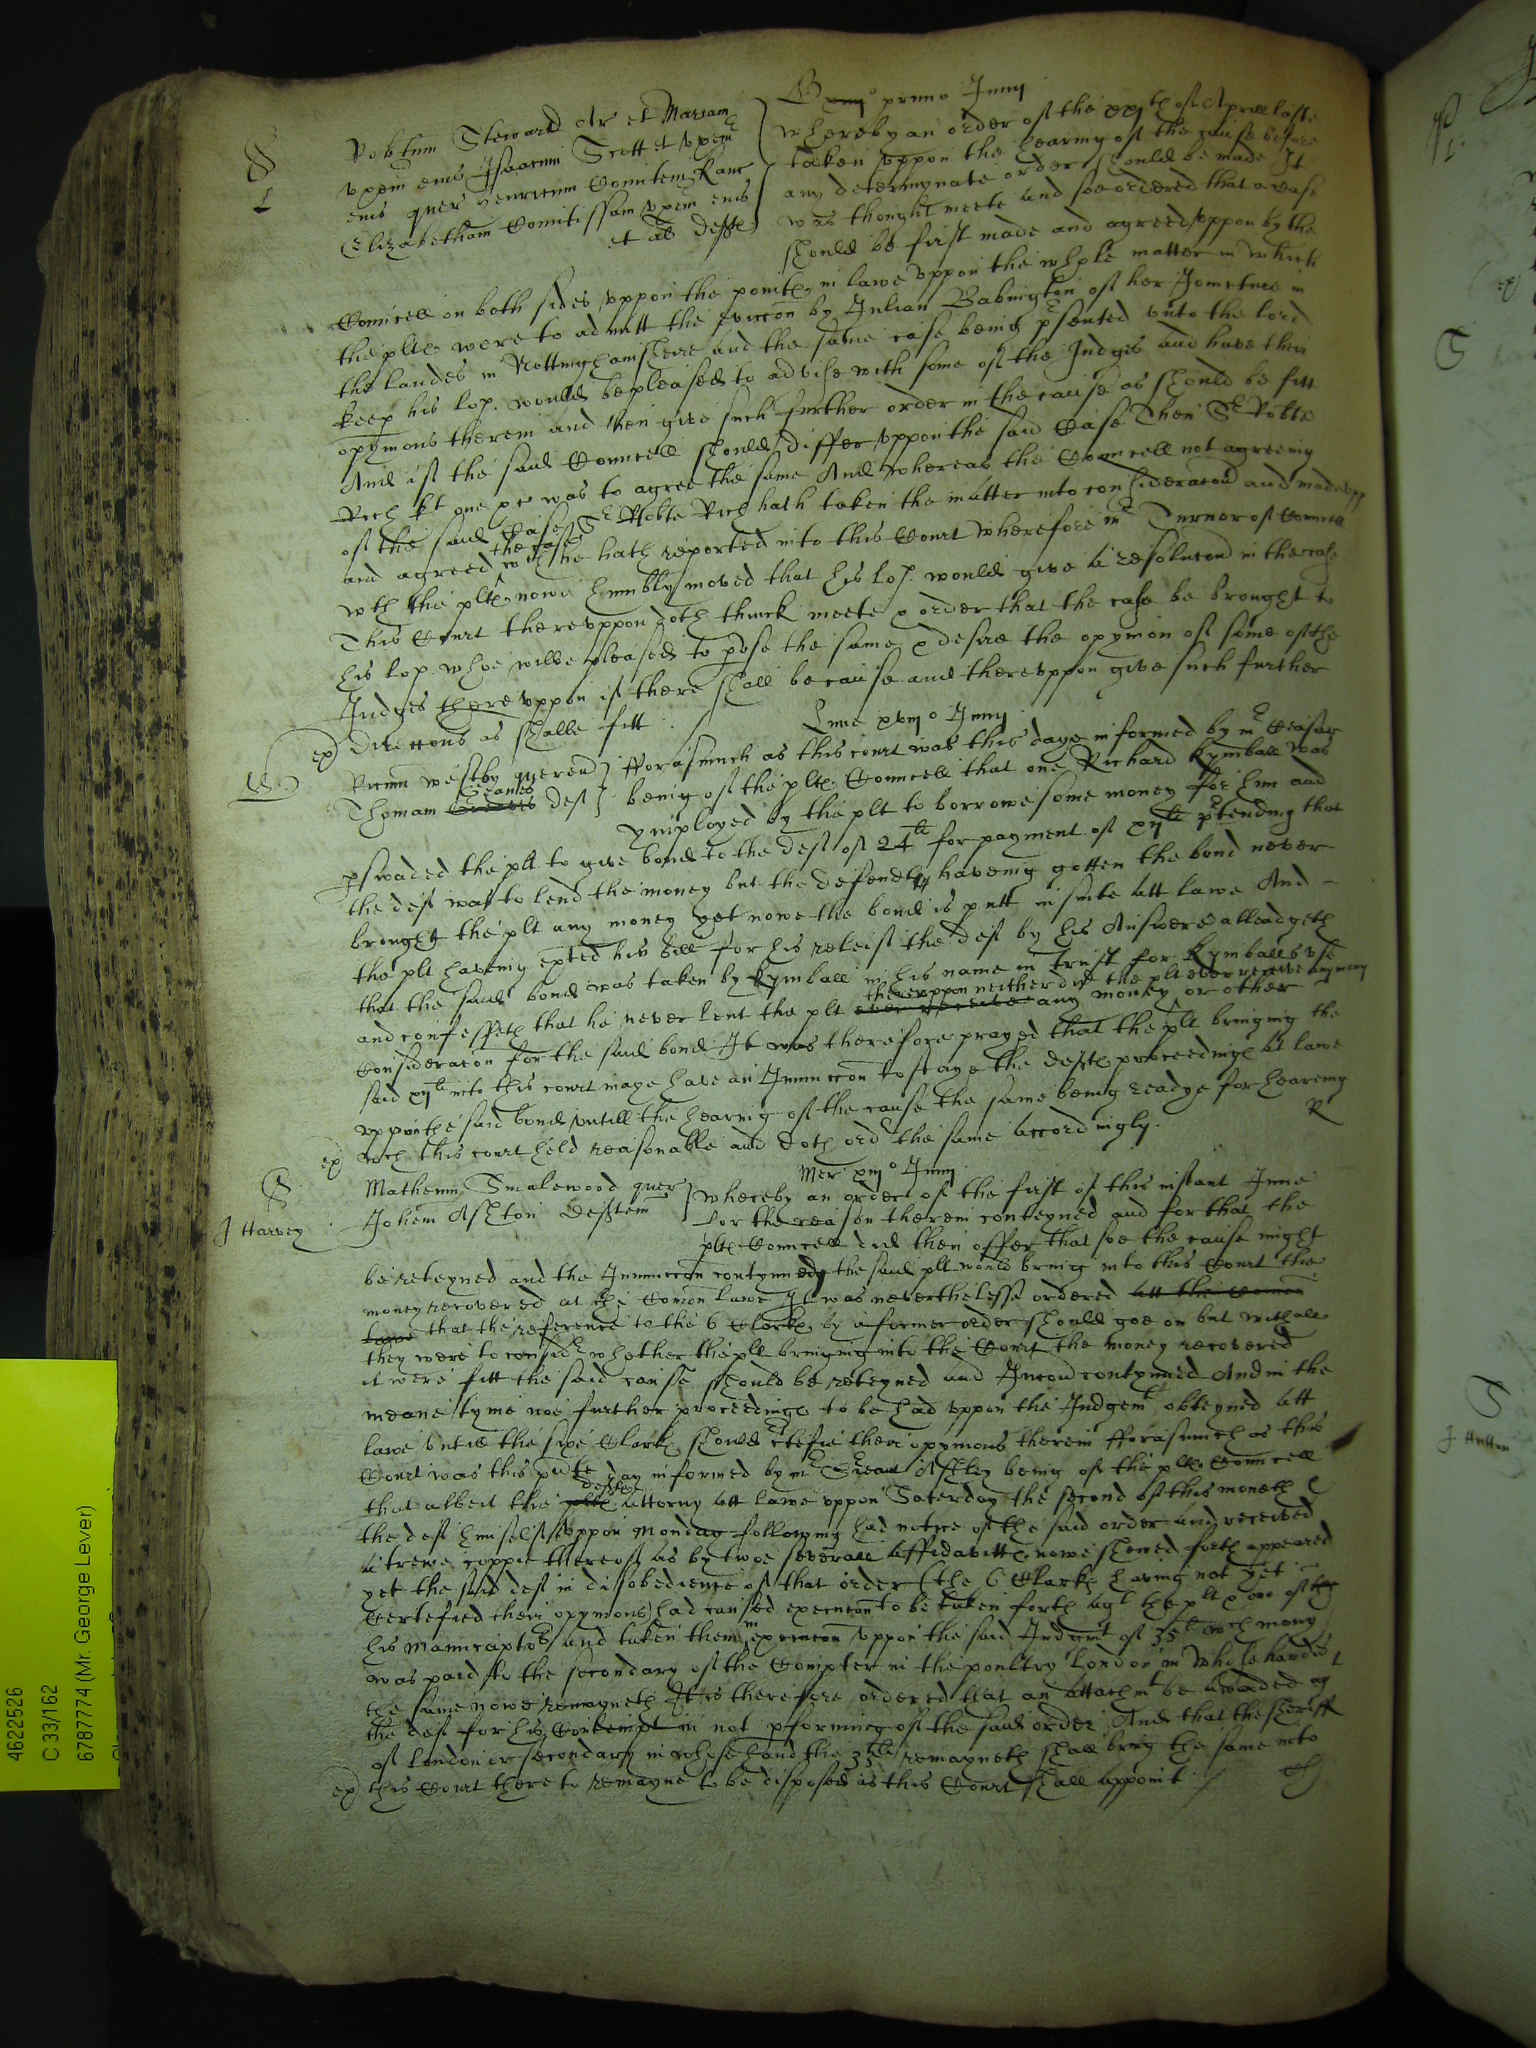 xiij° primo Junij
S
L
Robtum Steward Ar et Mariam
uxem eius Isaacum Scott et uxem
eius quer Henricum Comitem Kanc
Elizabetham Comitissam uxem eius
et al defts
Whereby an order of the xxjth of Aprill laste
taken uppon the hearing of the cause before
any determynate order should be made It
was thought meete and soe ordered that a Case
should be first made and agreed uppon by the
Councell on both sides uppon the points in lawe uppon the whole matter in which
the plts were to admitt the by Julian Babington of her Joincture in
the landes in Nottinghamshire and the same case being psented unto the lord
keep his lop. would be pleased to advise with some of the Judges and have their
opynions therein and then give such further order in the cause as should be fitt
And if the said Councell should differ uppon the said Case Then Sr Robte
Rich kt one was to agree the same And whereas the Councell not agreeing
of the said Case Sr Robte Rich hath taken the matter into consideracon and made upp
and agreed the case wch he hath reported into this Court wherefore mr Turnor of Councell
wth the plts nowe humbly moved that his lop. would give a resolucon in the case
This Court thereuppon doth thinck meete & order that the case be brought to
his lop. whoe wilbe pleased to pvse the same & desire the opynion of some of the
Judges thereuppon if there shall be cause and thereuppon give such further
ex direccons as shalbe fitt
Lune xviij° Junij
Ricum Westby quer
Thomam deft
Forasmuch as this court was this daye informed by mr
being of the plts Councell that one Richard Kymball was
ymployed by the plt to borrowe some money for him and
pswaded the plt to give bond to the deft of 24li for payment of xijli ptending that
the deft was to lend the money but the defendt haveing gotten the bond never
brought the plt any money yet nowe the bond is putt in suite att lawe And
the plt having exhted his bill for his releif the deft by his Answere alleadgeth
that the said bond was taken by Kymball in his name in trust for Kymballs use
and confesseth that he never lent the plt thereuppon neither did the plt ever receive any money
ever receive any money or other
Consideracon for the said bond It was therefore prayed that the plt bringing the
said xijli into this court maye have an Iniunccon to staye the defts proceedings at lawe
uppon the said bond untill the hearing of the cause the same being readye for hearing
ex wch this court held reasonable and doth ord the same accordingly. R
Mer xiij° Junij
S
J Harvey
Matheum Smalewood quer
Johem Ashton defentem
Whereby an order of the first of this instant June
for the reason therein conteyned and for that the
plts Councell did then offer that soe the cause might
be reteyned and the Iniunccon contynued the said plt would bring into this Court the
money recovered at the Comon lawe It was neverthelesse ordered att the Comon
lawe that the reference to the 6 Clarks by a former order should goe on but withall
they were to consider whether the plt bringing into the Court the money recovered
it were fitt the said cause should be reteyned and Iniuncon contynued And in the
meane tyme noe further proceedings to be had uppon the Judgemt obteyned att
lawe untill the sixe Clarks should ctefie their opynions therein Forasmuch as this
Court was this pnte day informed by mr Sriant Asshley being of the plts Councell
that albeit the defts plts Attorny att lawe uppon Saterday the second of this moneth &
the deft himselfe uppon Monday following had notice of the said order and received
a trewe coppie thereof as by twoe severall affidavitts nowe shewed forth appeared
yet the said deft in disobedience of that order (the 6 Clarks having not yet
Certefied their opynions) had caused execucon to be taken forth agt the plt & one of the
his manucaptors and taken them in execucon uppon the said Judgemt of 35li wch mony
was paid to the secondary of the Compter in the poultry London in whose handes
the same nowe remayneth It is therefore ordered that an attachmt be awarded ag
the deft for his Contempt in not pforming of the said order And that the sheriff
of London or secondary in whose hand the 35li remayneth shall bring the same into
ex this Court there to remayne to be disposed as this Court shall appoint
4622526
C 33/162
6787774 (Mr. George Lever)
S
J Hutton